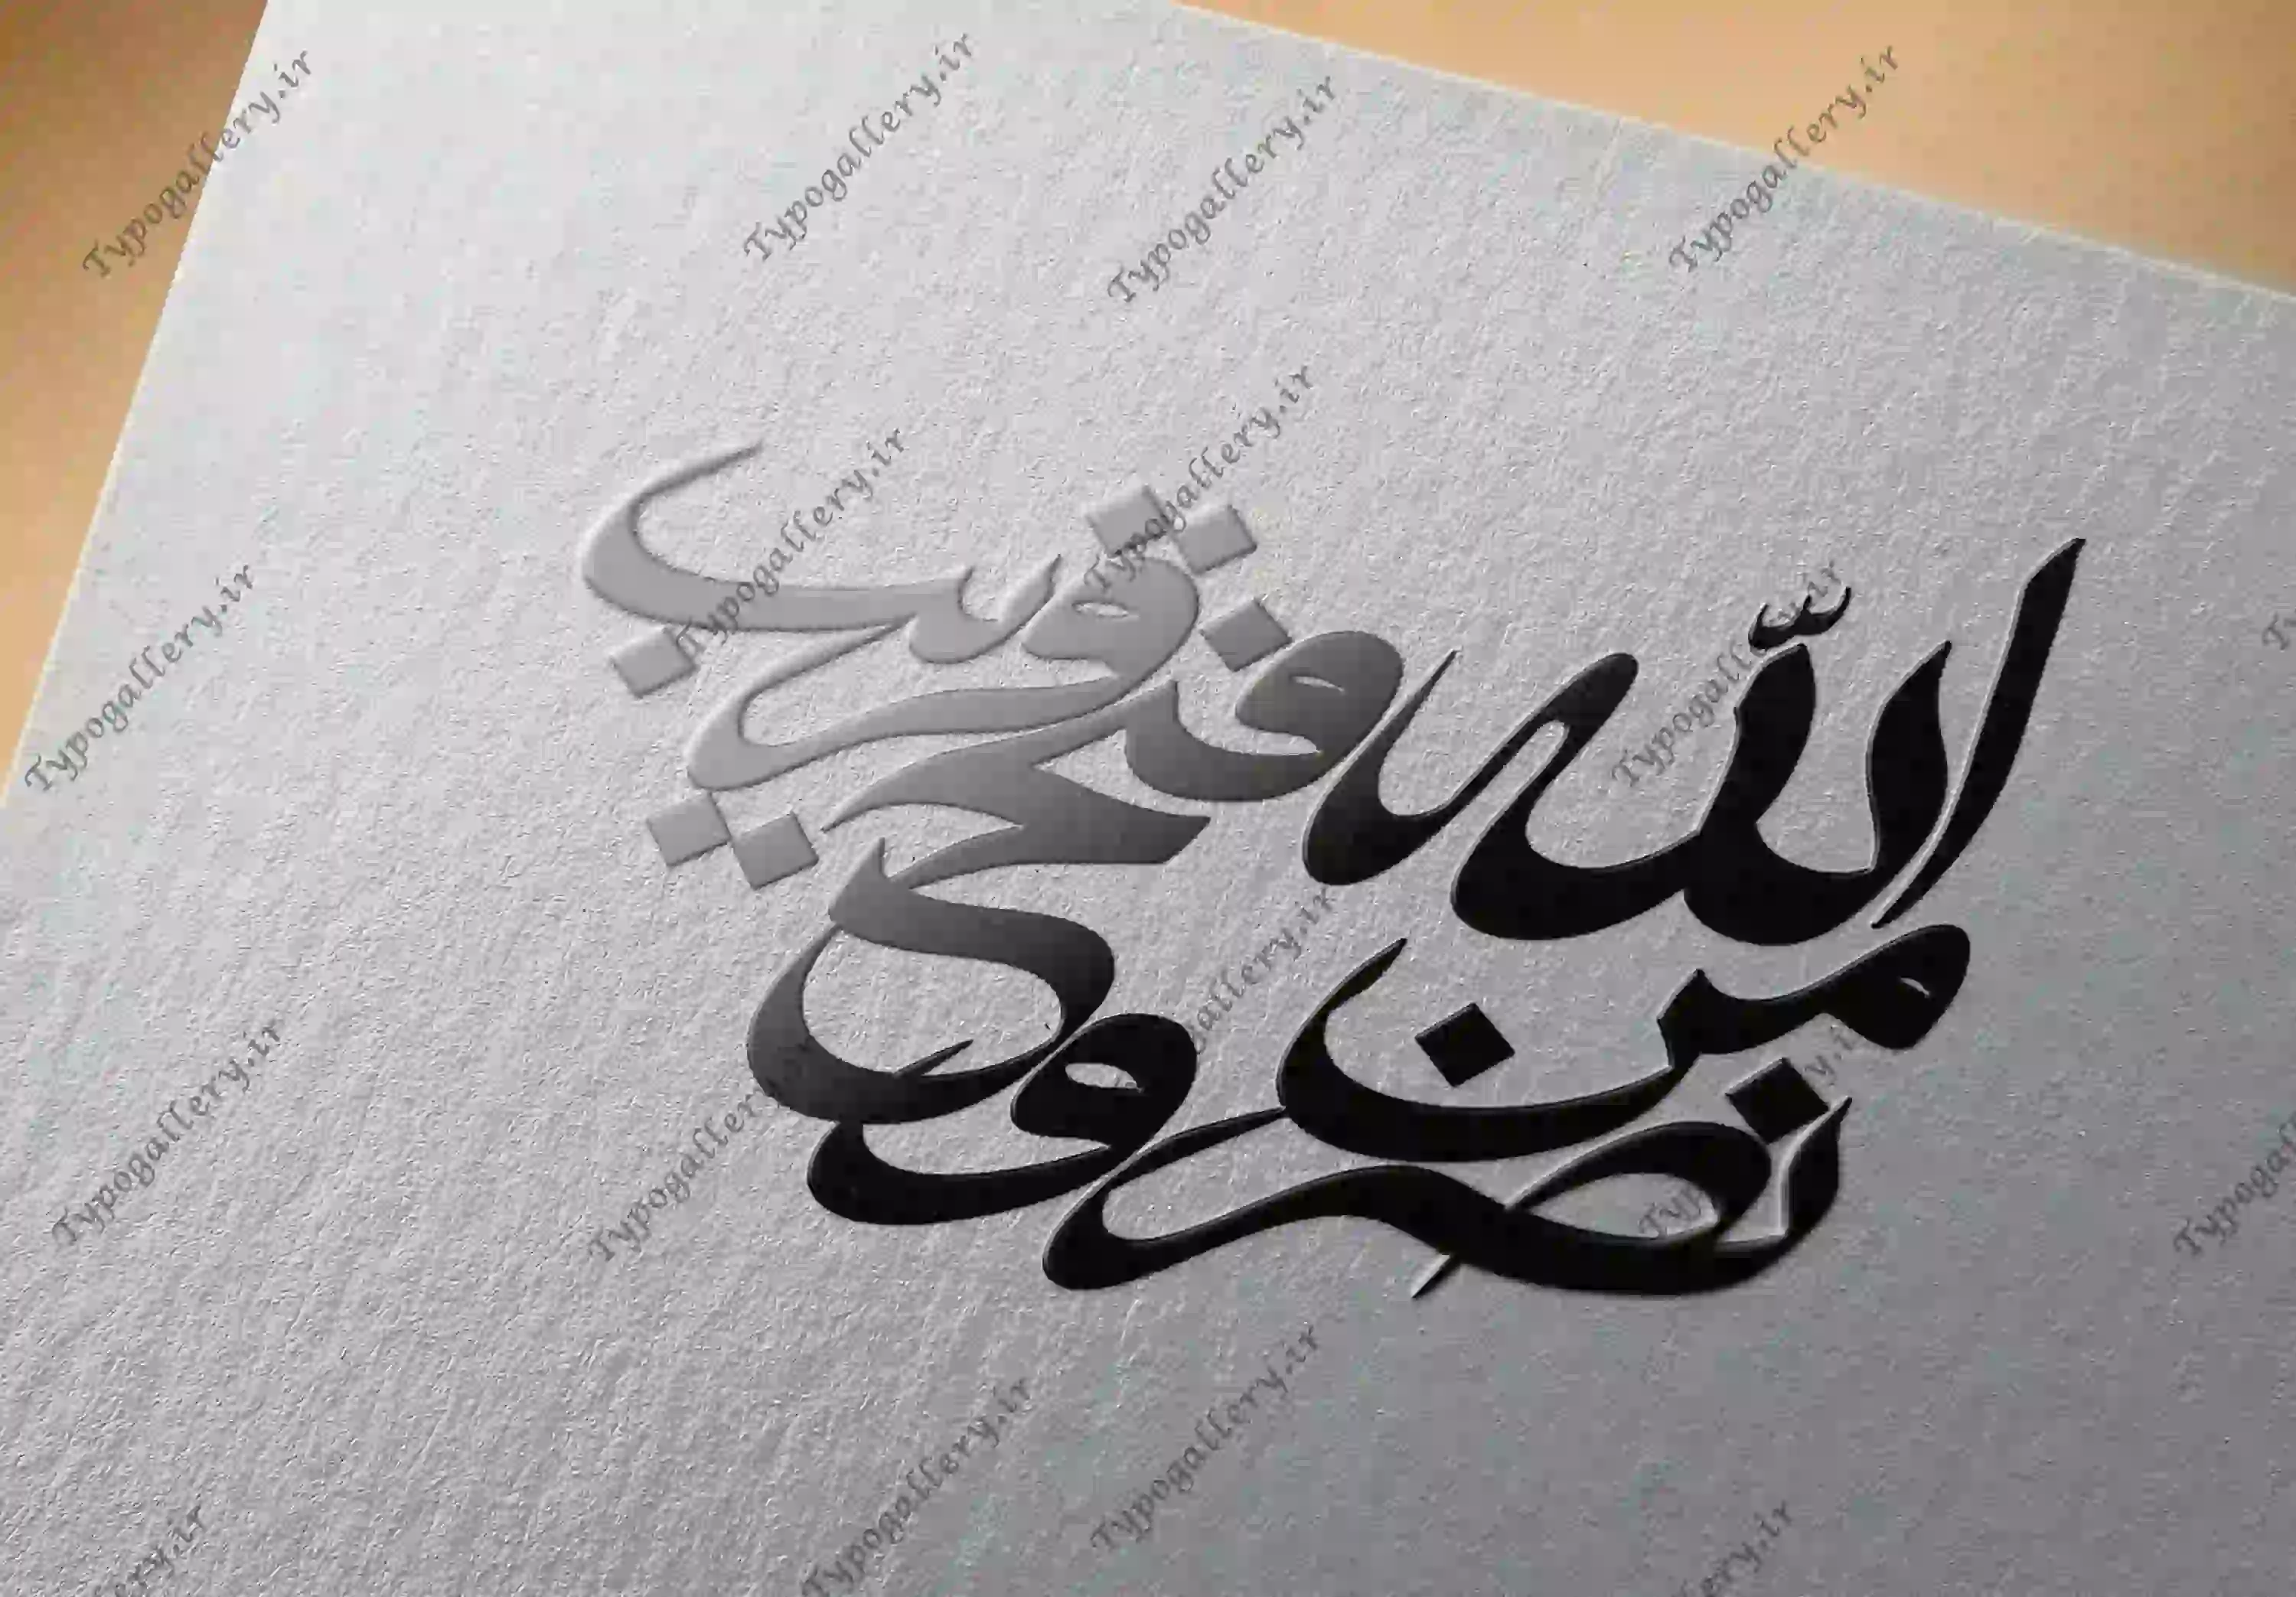 نصر من الله و فتح قریب
Typogallery.ir
Typogallery.ir
Typogallery.ir
Typogallery.ir
Typogallery.ir
Typogallery.ir
Typogallery.ir
Typogallery.ir
Typogallery.ir
Typogallery.ir
Typogallery.ir
Typogallery.ir